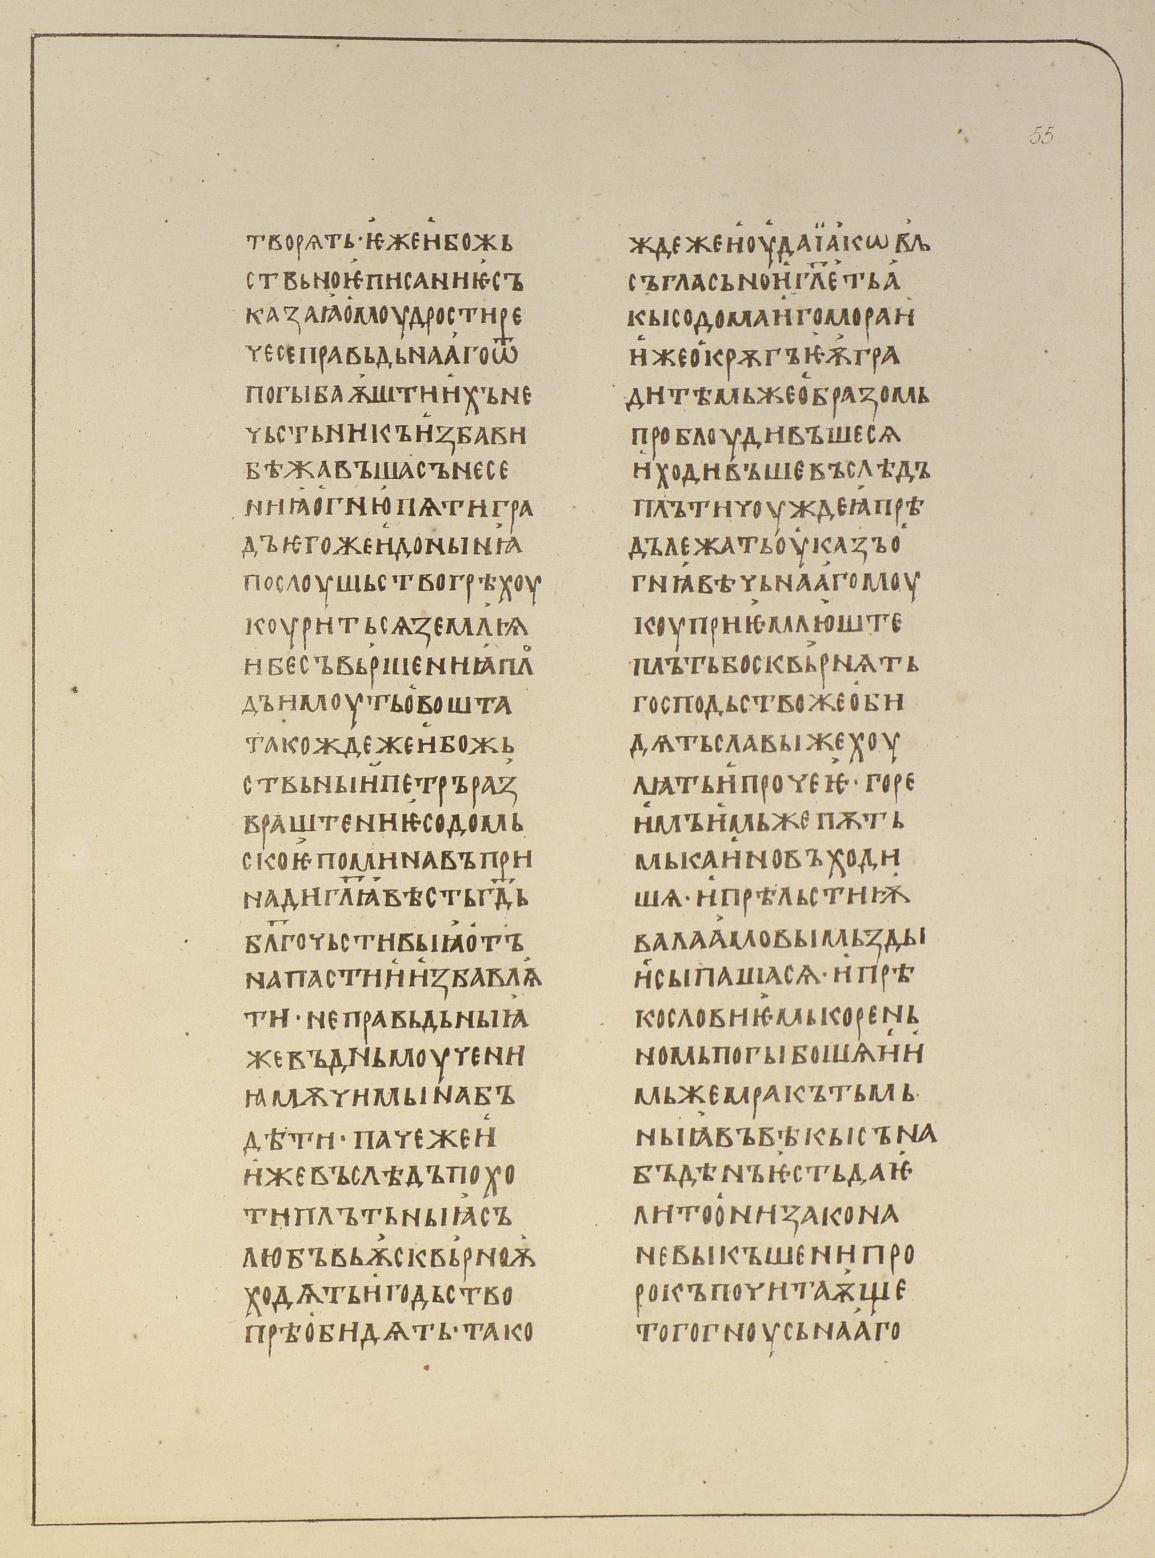 55
творѧть·ѥжеибожь
ствьноѥписаниѥсъ
казаꙗомоудростире
чесеправьдьнааго ѿ
погыбаѭштиихъне
чьстьникъизбави
бѣжавъшасънесе
ниꙗогнюпѧтигра
дъѥгожеидонынꙗ
послоушьствогрѣхоу
коуритьсѧземлꙗ
ибесъвьршениꙗпло
дъимоутьовошта
такождежеибожь
ствьныипетръраз
враштениѥсодомь
скоѥпоминавъпри
надигл҃ꙗвѣстьгд҃ь
бл҃гочьстивыꙗотъ
напастииизбавлѧ
ти·неправьдьныꙗ
жевъдн҃ьмоучени
ꙗмѫчимынабъ
дѣти·пачежеи
ижевъслѣдъпохо
типлътьныꙗсъ
любъвьѭсквьрноѭ
ходѧтьигодьство
прѣобидѧть·тако
ждежеиоудаꙇакѡвл҄ь
съгласьноигл҃етьа
кысодомаигомораи
ижеокрѫгъѥѭгра
дитѣмьжеобразомь
проблоудивъшесѧ
иходивъшевъслѣдъ
плътичоуждеꙗпрѣ
дълежатьоуказъо
гнꙗвѣчьнаагомоу
коуприѥмлюште
плътьбосквьрнѧть
господьствожеоби
дѧтьславыжехоу
лꙗтьипрочеѥ·горе
имъимьжепѫть
мькаиновъходи
шѧ·ипрѣльстиѭ
валаамовымьзды
исыпашасѧ·ипрѣ
кословиѥмькорень
номьпогыбошѧии
мьжемракътьмь
ныꙗвъвѣкысъна
бъдѣнъѥстьдаѥ
литоонизакона
невыкъшенипро
рокъпочитаѭще
тогогноусьнааго